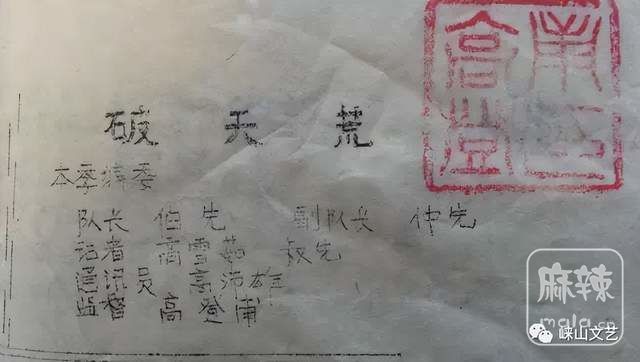 高登
甫印
破天荒
本季编委
队长 伯先 副队长 仲先
记者 高雪 叔先
通讯员 沛雄
监督 高登甫
麻辣
mala.cn
崃山文艺